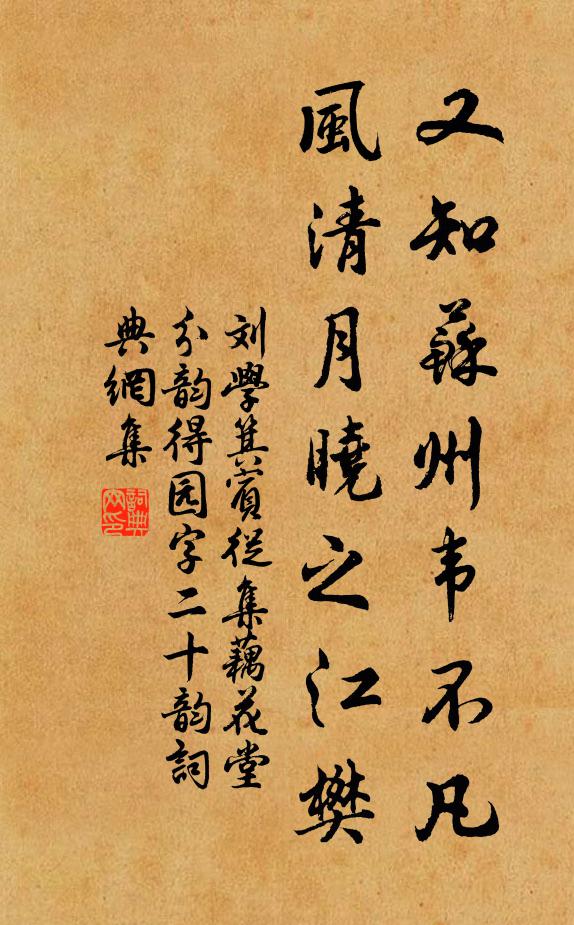 又知蘇州韦不凡
風清月曉之江樊
刘學箕賓從集藕花堂
分韵得园字二十韵詞
典網集
詞典网印